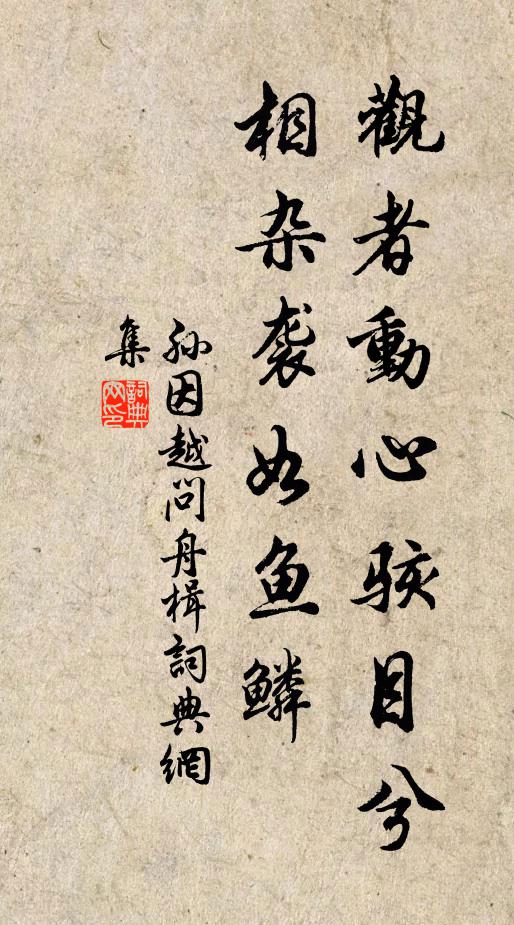 觀者動心駭目兮
相杂袭如鱼鳞
孙因越问舟楫詞典網
集
詞典網印